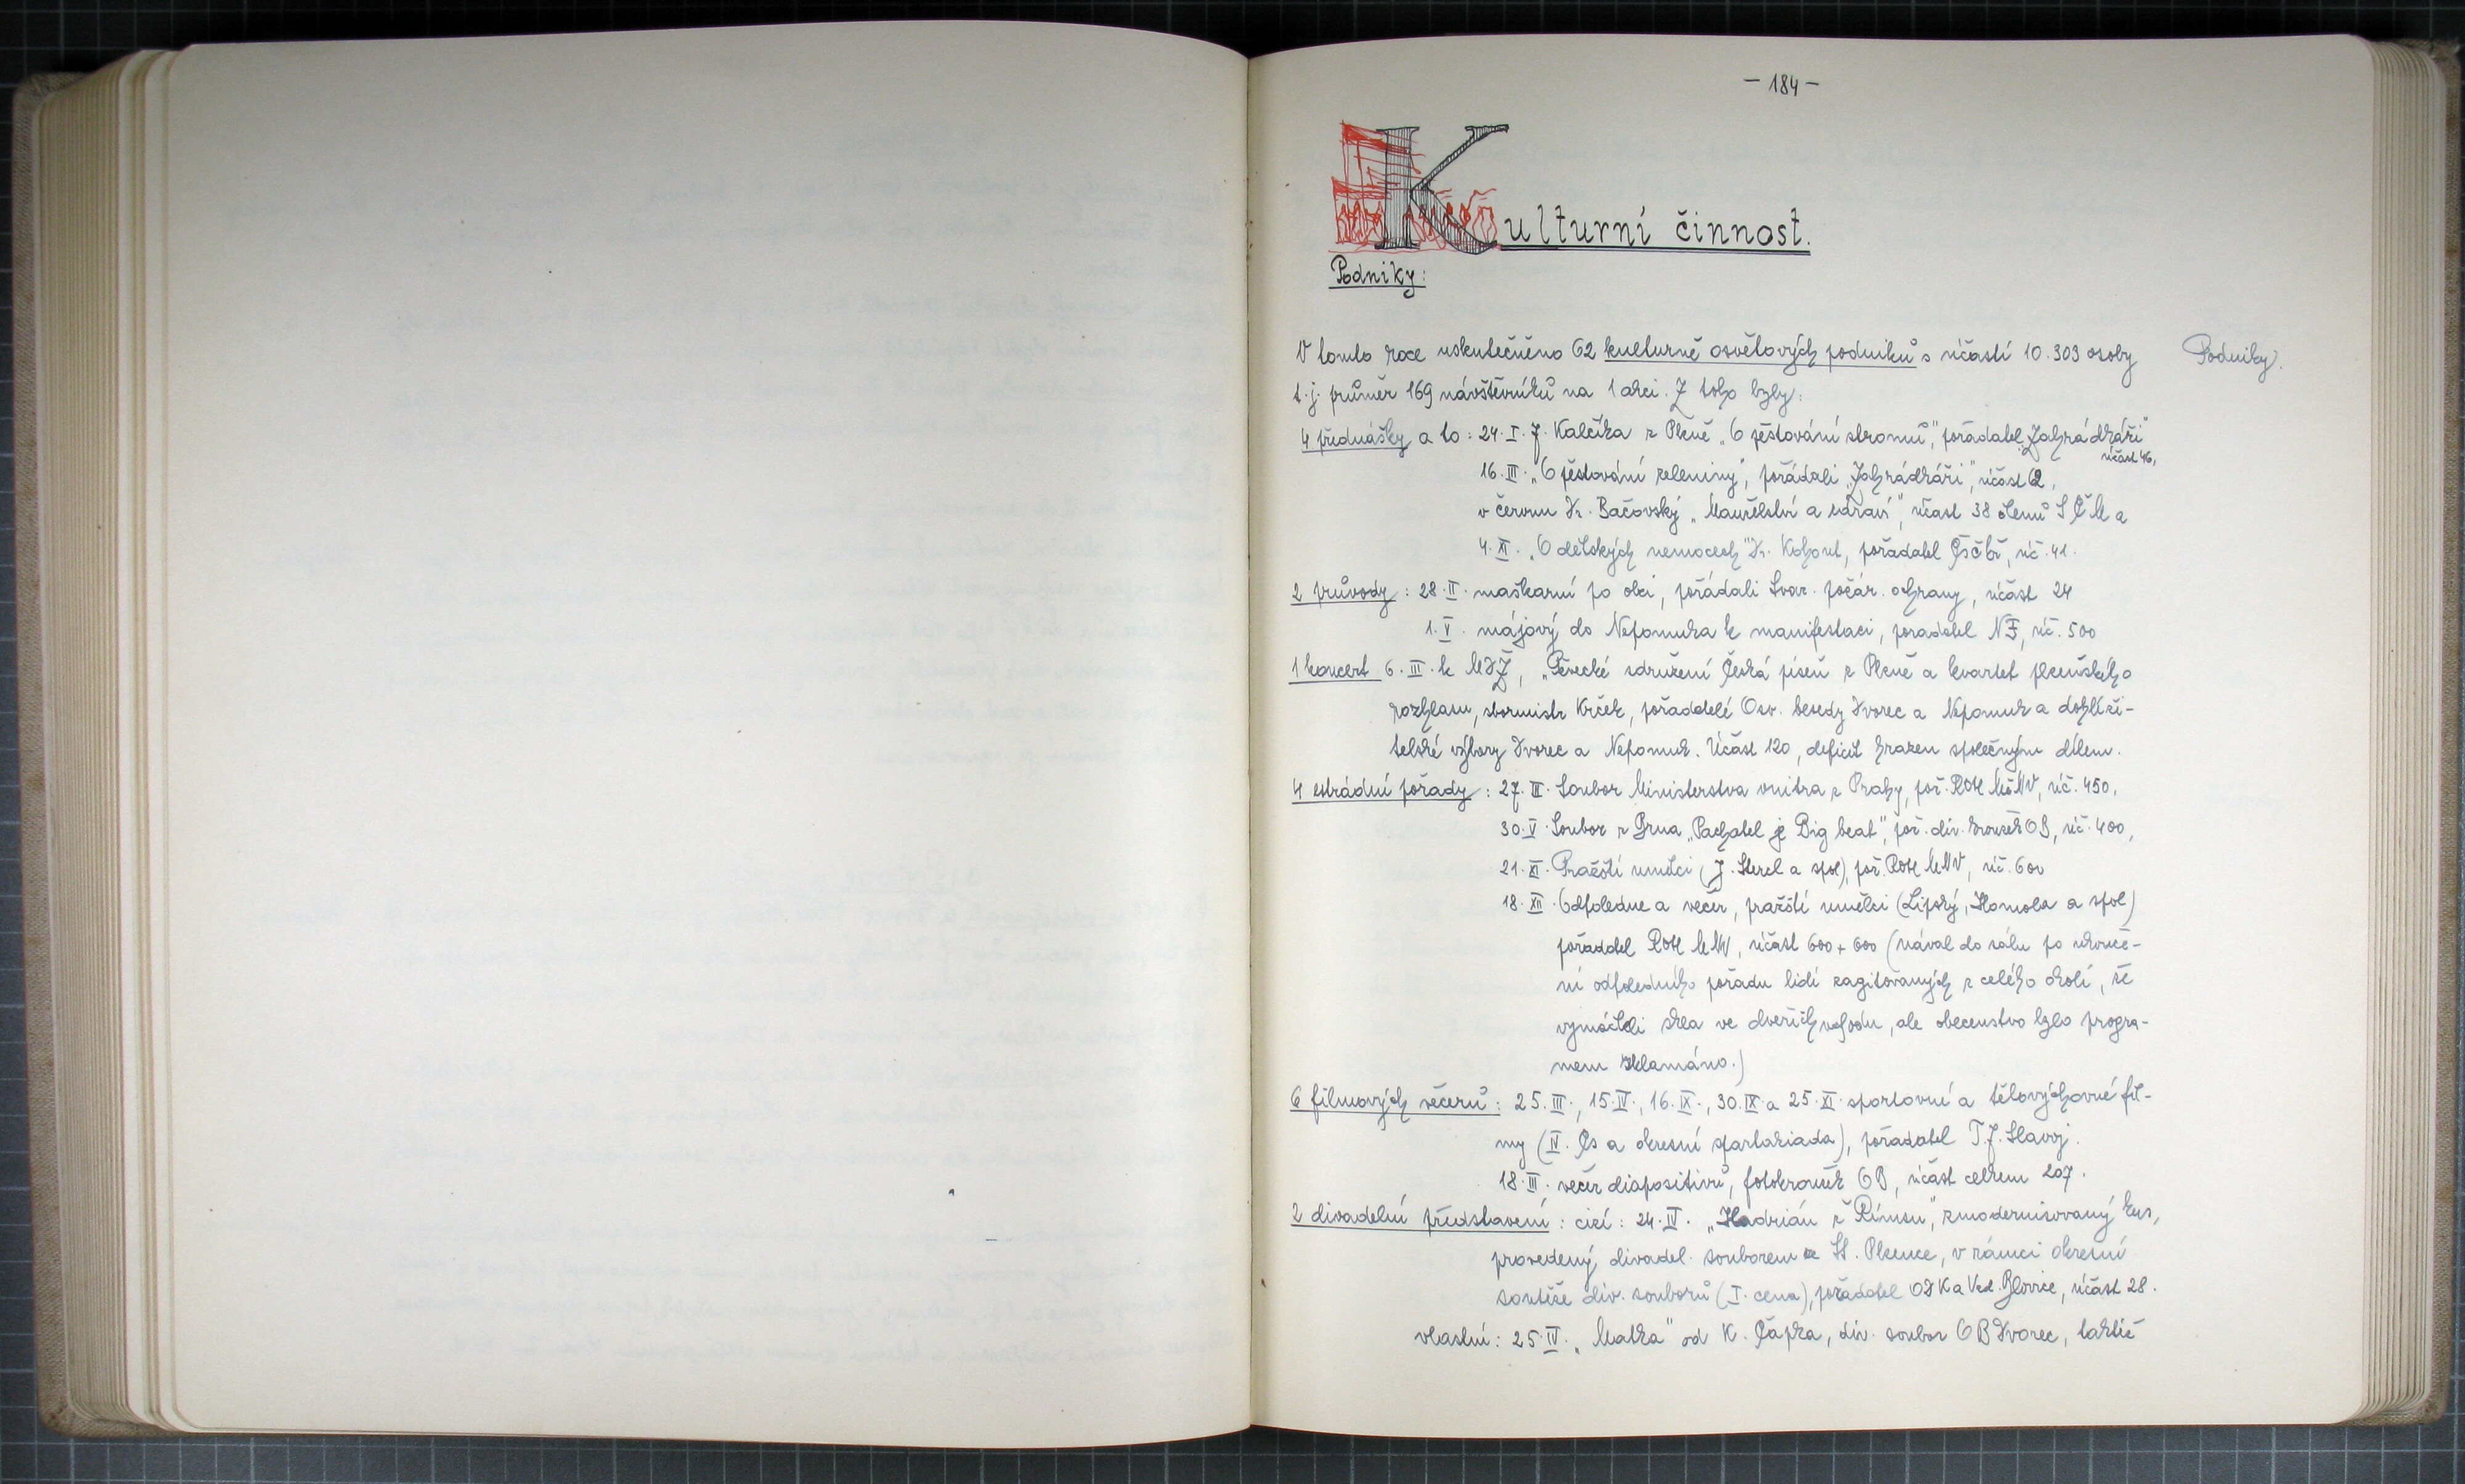 - 184 -
Kulturní činnost.
Podniky:
V tomto roce uskutečněno 62 kulturně osvětových podniků s účastí 10.303 osoby
Podniky.
t.j. průměr 169 návštěvníků na 1 akci. Z toho byly:
4 přednášky a to: 24.I. J. Kalčíka z Plzně „O pěstování stromů", pořadatel „Zahrádkáři"
účast 46,
16.III. „O pěstování zeleniny", pořádali „Zahrádkáři", účast 62,
v červnu Dr. Bačovský „Manželství a zdraví", účast 38 členů SČM a
4.XI. „O dětských nemocech" Dr. Kohout, pořadatel ČSČK, úč. 41.
2 průvody: 28.II. maškarní po obci, pořádali Svaz. požár. ochrany, účast 24
1.V. májový do Nepomuka k manifestaci, poradatel NF, úč. 500
1 koncert 6.III. k MDŽ, „Pěvecké sdružení Česká píseň z Plzně a kvartet plzeňského
rozhlasu, sbormistr Krček, pořaddelé Osv. besedy Dvorec a Nepomuk a dohlíži-
telské výbory Dvorec a Nepomuk. Účast 120, deficit hrazen společným dílem.
4 estrádní pořady: 27.III. Soubor Ministerstva vnitra z Prahy, poř. ROH MěNV, úč. 450,
30.V. Soubor z Brna „Pachatel je Big beat", poř. div. kroužek OB, úč. 400,
21.XI. Pražští umělci (J. Štercl a spol), poř. ROH MNV, úč. 600
18.XII. Odpoledne a večer, pražští umělci (Lipský, Homola a spol)
pořaddel ROH MNV, účast 600 + 600 (nával do sálu po ukonče-
ní odpoledního pořadu lidí zagitovaných z celého okolí, že
vymáčkli skla ve dveřích vchodu, ale obecenstvo bylo progra-
mem zklamáno.)
6 filmových večerů: 25.III., 15.IV., 16.IX., 30.IX a 25.XI sportovní a tělovýchovné fil-
my (IV. Čs a okresní spartakiada), pořadatel T.J. Slavoj.
18.III. večer diapositivů, fotokroužek OB, účast celkem 207.
2 divadelní představení: cizí: 24.IV. „Hadrián z Římsů", zmodernisovaný kus,
provedený divadel. souborem St. Plzence, v rámci okresní
soutěže div. souborů (I. cena), pořadatel ODK a Ved. Blovice, účast 28.
vlastní: 25.IV. „Matka" od K. Čapka, div. soubor OB Dvorec, taktéž